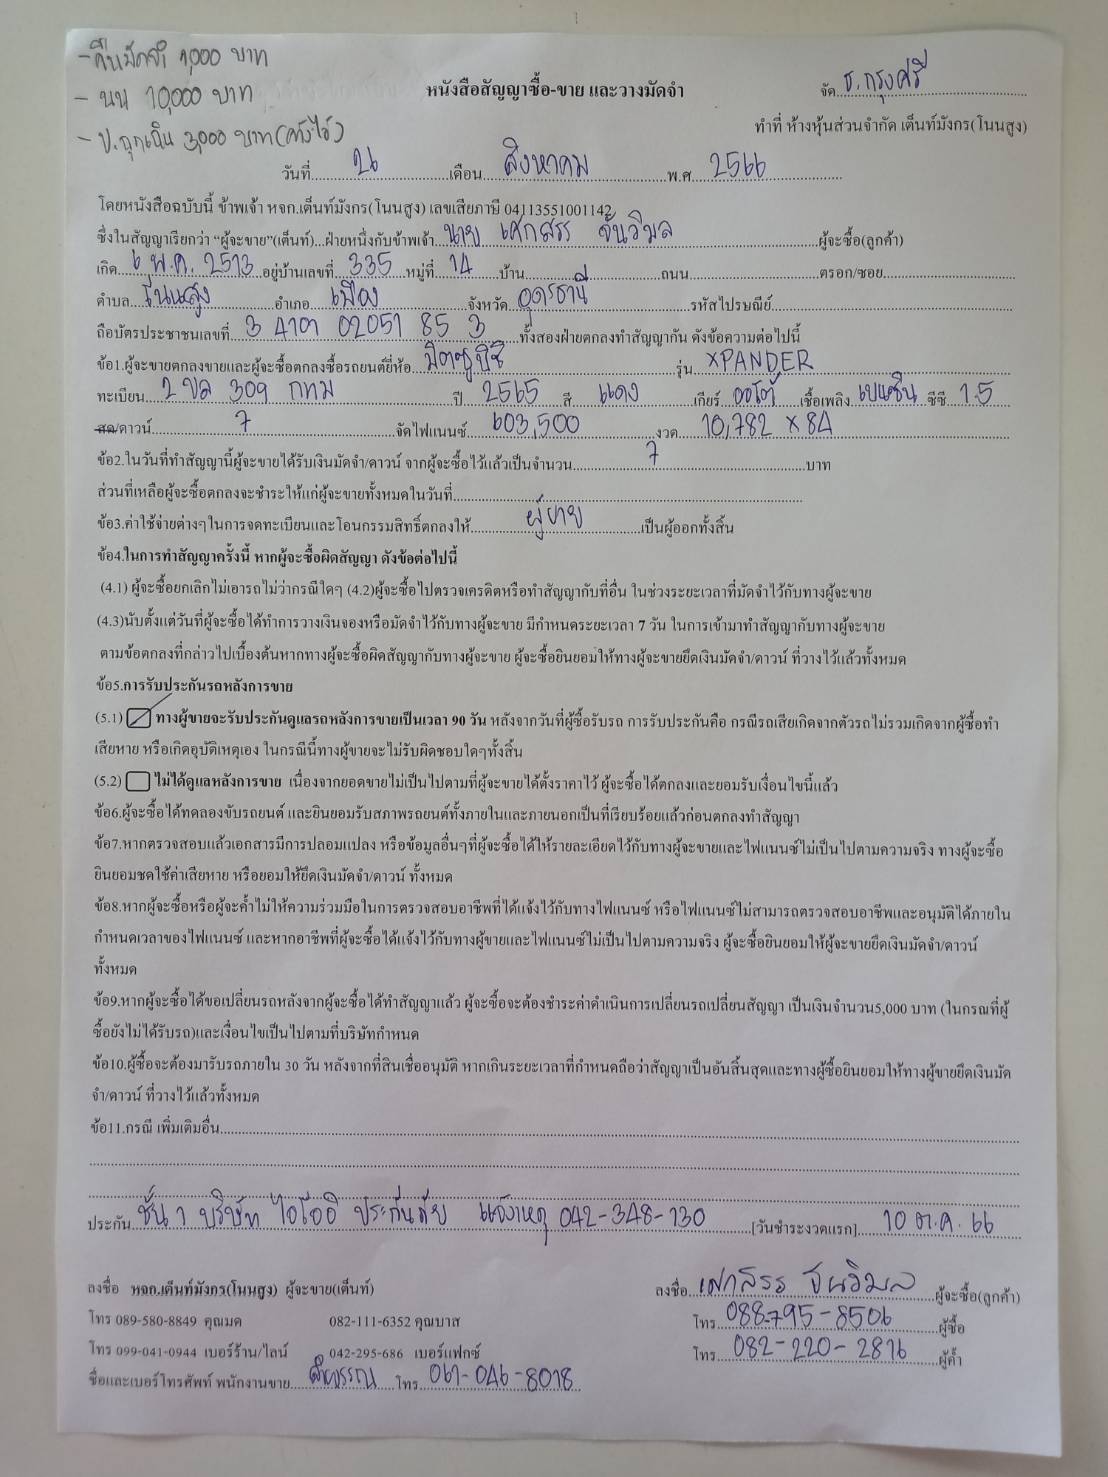 - คืนมัดจำ 1,000 บาท
- นน 10,000 บาท
- ป.ฉุกเฉิน 3,000 บาท
หนังสือสัญญาซื้อ-ขาย และวางมัดจำ
จัด ธ.กรุงศรี
ทำที่ ห้างหุ้นส่วนจำกัด เต็นท์มังกร(โนนสูง)
วันที่ 26 เดือน สิงหาคม พ.ศ. 2566
โดยหนังสือฉบับนี้ ข้าพเจ้า หจก.เต็นท์มังกร(โนนสูง) เลขเสียภาษี 04113551001142
ซึ่งในสัญญาเรียกว่า “ผู้จะขาย”(เต็นท์)...ฝ่ายหนึ่งกับข้าพเจ้า นาย เศกสรร จันวิมล ผู้จะซื้อ(ลูกค้า)
เกิด 6 พ.ค. 2513 อยู่บ้านเลขที่ 335 หมู่ที่ 14 บ้าน ถนน ตรอก/ซอย
ตำบล โนนสูง อำเภอ เมือง จังหวัด อุดรธานี รหัสไปรษณีย์
ถือบัตรประชาชนเลขที่ 3 4101 02051 85 3 ทั้งสองฝ่ายตกลงทำสัญญากัน ดังข้อความต่อไปนี้
ข้อ1.ผู้จะขายตกลงขายและผู้จะซื้อตกลงซื้อรถยนต์ยี่ห้อ มิตซูบิชิ รุ่น XPANDER
ทะเบียน 2 ขล 309 กทม ปี 2565 สี แดง เกียร์ ออโต้ เชื้อเพลิง เบนซิน ซีซี 1.5
สด/ดาวน์ 7 จัดไฟแนนซ์ 603,500 งวด 10,782 x 84
ข้อ2.ในวันที่ทำสัญญานี้ผู้จะขายได้รับเงินมัดจำ/ดาวน์ จากผู้จะซื้อไว้แล้วเป็นจำนวน 7 บาท
ส่วนที่เหลือผู้จะซื้อตกลงจะชำระให้แก่ผู้จะขายทั้งหมดในวันที่
ข้อ3.ค่าใช้จ่ายต่างๆในการจดทะเบียนและโอนกรรมสิทธิ์ตกลงให้ ผู้ขาย เป็นผู้ออกทั้งสิ้น
ข้อ4.ในการทำสัญญาครั้งนี้ หากผู้จะซื้อผิดสัญญา ดังข้อต่อไปนี้
(4.1) ผู้จะซื้อยกเลิกไม่เอารถไม่ว่ากรณีใดๆ (4.2)ผู้จะซื้อไปตรวจเครดิตหรือทำสัญญากับที่อื่น ในช่วงระยะเวลาที่มัดจำไว้กับทางผู้จะขาย
(4.3)นับตั้งแต่วันที่ผู้จะซื้อได้ทำการวางเงินจองหรือมัดจำไว้กับทางผู้จะขาย มีกำหนดระยะเวลา 7 วัน ในการเข้ามาทำสัญญากับทางผู้จะขาย
ตามข้อตกลงที่กล่าวไปเบื้องต้นหากทางผู้จะซื้อผิดสัญญากับทางผู้จะขาย ผู้จะซื้อยินยอมให้ทางผู้จะขายยึดเงินมัดจำ/ดาวน์ ที่วางไว้แล้วทั้งหมด
ข้อ5.การรับประกันรถหลังการขาย
(5.1) ทางผู้ขายจะรับประกันดูแลรถหลังการขายเป็นเวลา 90 วัน หลังจากวันที่ผู้ซื้อรับรถ การรับประกันคือ กรณีรถเสียเกิดจากตัวรถไม่รวมเกิดจากผู้ซื้อทำ
เสียหาย หรือเกิดอุบัติเหตุเอง ในกรณีนี้ทางผู้ขายจะไม่รับผิดชอบใดๆทั้งสิ้น
(5.2) ไม่ได้ดูแลหลังการขาย เนื่องจากยอดขายไม่เป็นไปตามที่ผู้จะขายได้ตั้งราคาไว้ ผู้จะซื้อได้ตกลงและยอมรับเงื่อนไขนี้แล้ว
ข้อ6.ผู้จะซื้อได้ทดลองขับรถยนต์ และยินยอมรับสภาพรถยนต์ทั้งภายในและภายนอกเป็นที่เรียบร้อยแล้วก่อนตกลงทำสัญญา
ข้อ7.หากตรวจสอบแล้วเอกสารมีการปลอมแปลง หรือข้อมูลอื่นๆที่ผู้จะซื้อได้ให้รายละเอียดไว้กับทางผู้จะขายและไฟแนนซ์ไม่เป็นไปตามความจริง ทางผู้จะซื้อ
ยินยอมชดใช้ค่าเสียหาย หรือยอมให้ยึดเงินมัดจำ/ดาวน์ ทั้งหมด
ข้อ8.หากผู้จะซื้อหรือผู้จะค้ำไม่ให้ความร่วมมือในการตรวจสอบอาชีพที่ได้แจ้งไว้กับทางไฟแนนซ์ หรือไฟแนนซ์ไม่สามารถตรวจสอบอาชีพและอนุมัติได้ภายใน
กำหนดเวลาของไฟแนนซ์ และหากอาชีพที่ผู้จะซื้อได้แจ้งไว้กับทางผู้ขายและไฟแนนซ์ไม่เป็นไปตามความจริง ผู้จะซื้อยินยอมให้ผู้จะขายยึดเงินมัดจำ/ดาวน์
ทั้งหมด
ข้อ9.หากผู้จะซื้อได้ขอเปลี่ยนรถหลังจากผู้จะซื้อได้ทำสัญญาแล้ว ผู้จะซื้อจะต้องชำระค่าดำเนินการเปลี่ยนรถเปลี่ยนสัญญา เป็นเงินจำนวน5,000 บาท (ในกรณที่ผู้
ซื้อยังไม่ได้รับรถ)และเงื่อนไขเป็นไปตามที่บริษัทกำหนด
ข้อ10.ผู้ซื้อจะต้องมารับรถภายใน 30 วัน หลังจากที่สินเชื่ออนุมัติ หากเกินระยะเวลาที่กำหนดถือว่าสัญญาเป็นอันสิ้นสุดและทางผู้ซื้อยินยอมให้ทางผู้ขายยึดเงินมัด
จำ/ดาวน์ ที่วางไว้แล้วทั้งหมด
ข้อ11.กรณี เพิ่มเติมอื่น
ประกัน ชั้น 1 บริษัท ไอโออิ ประกันภัย แจ้งเหตุ 042-348-130 [วันชำระงวดแรก] 10 ต.ค. 66
ลงชื่อ หจก.เต็นท์มังกร(โนนสูง) ผู้จะขาย(เต็นท์)
ลงชื่อ เศกสรร จันวิมล ผู้จะซื้อ(ลูกค้า)
โทร 089-580-8849 คุณมด 082-111-6352 คุณบาส
โทร 088-795-8506 ผู้ซื้อ
โทร 099-041-0944 เบอร์ร้าน/ไลน์ 042-295-686 เบอร์แฟกซ์
โทร 082-220-2876 ผู้ค้ำ
ชื่อและเบอร์โทรศัพท์ พนักงานขาย โทร 061-046-8018